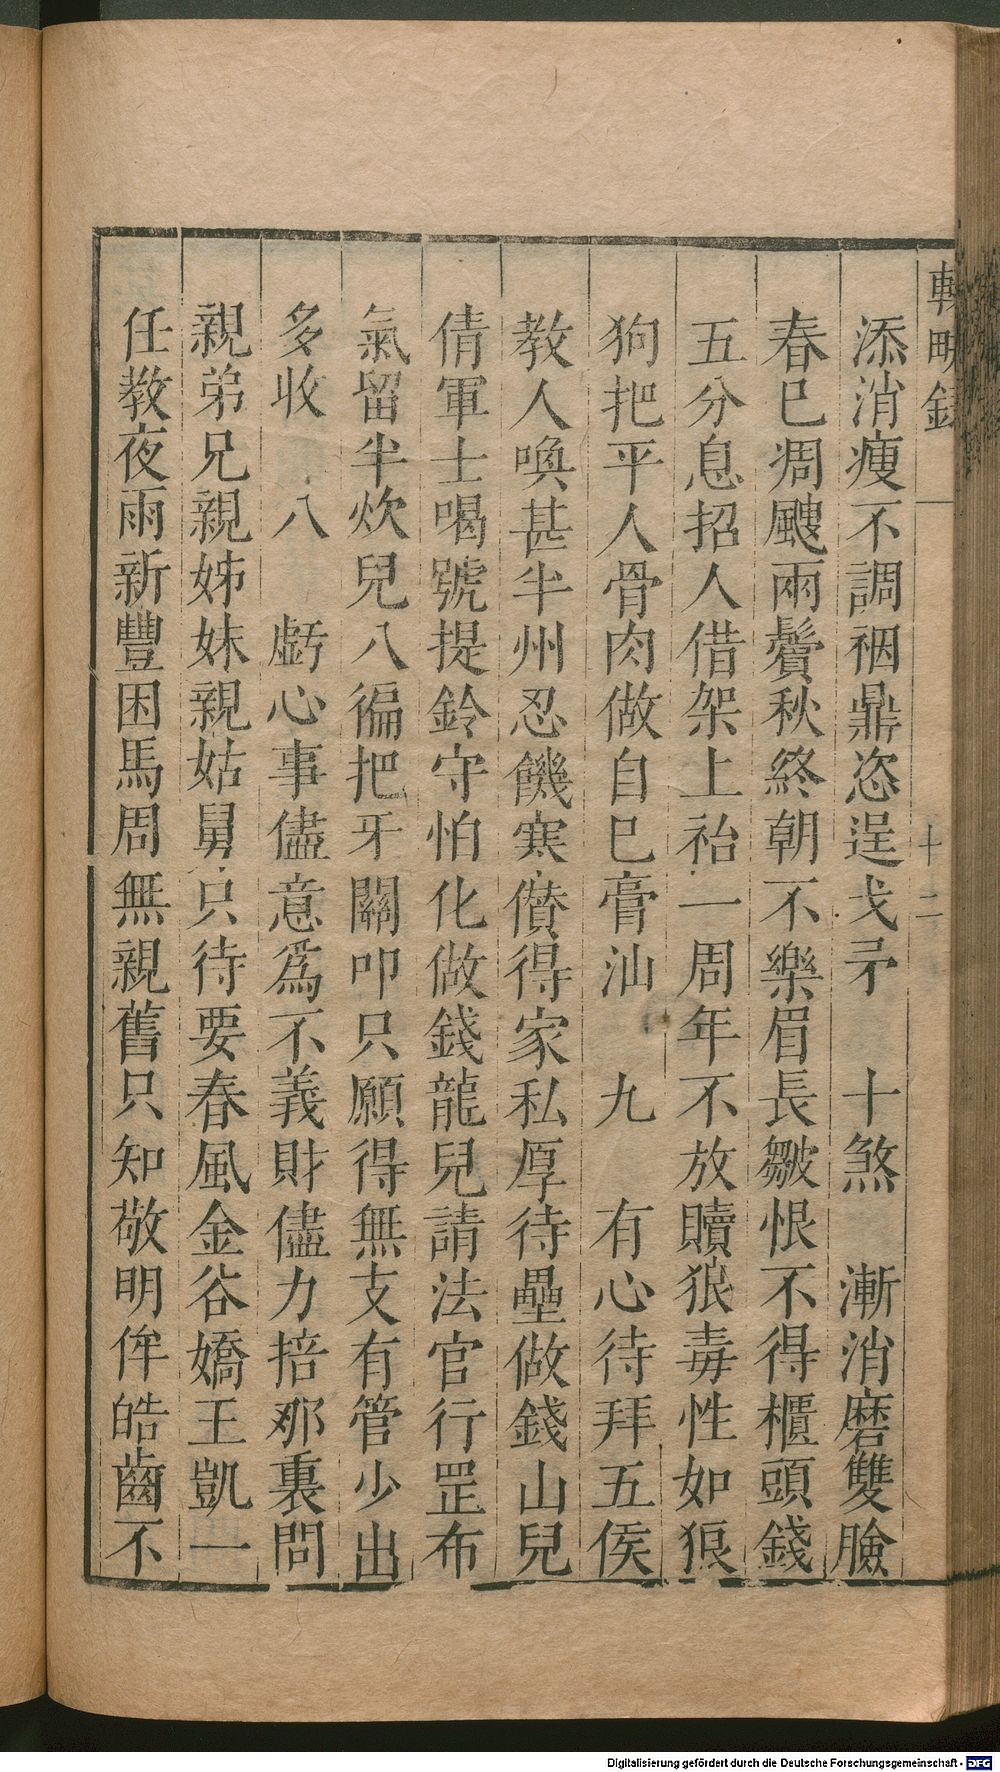 輟畊錄
十二
添消瘦不調裀鼎恣逞戈矛　十煞　漸消磨雙臉
春已凋颼兩鬢秋終朝不樂眉長皺恨不得櫃頭錢
五分息招人借架上袷一周年不放贖狼毒性如狠
狗把平人骨肉做自已膏汕　九　有心待拜五侯
教人喚甚半州忍饑寒儹得家私厚待壘做錢山兒
倩軍士喝號提鈴守怕化做錢龍兒請法官行罡布
氣留半炊兒八徧把牙關叩只願得無支有管少出
多收　八　虧心事儘意爲不義財儘力掊那裏問
親弟兄親姊妹親姑舅只待要春風金谷嬌王凱一
任教夜雨新豐困馬周無親舊只知敬明侔皓齒不
Digitalisierung gefördert durch die Deutsche Forschungsgemeinschaft - DFG